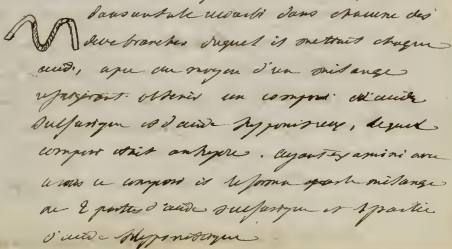 dans un tube recourbé dans chacune des
deux branches duquel il mettrait chaque
acide, afin au moyen d'un mélange
réfrigérant obtenir un composé d'acide
sulfurique et d'acide hypponitreux, lequel
composé était anhydre. ayant examiné avec
ce composé il se forma par le mélange
de 2 parties d'acide sulfurique et 1 partie
d'acide hypponitrique